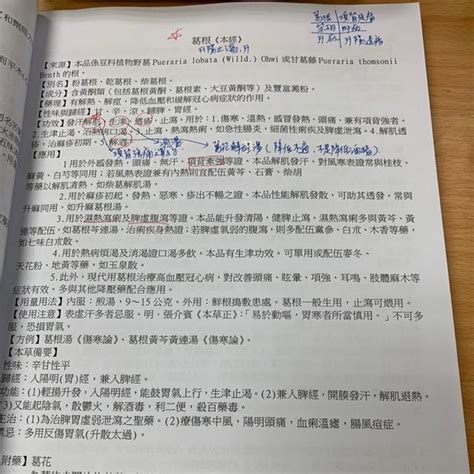 葛根《本經》
升陽出汗,升
【來源】本品係豆科植物野葛Pueraria lobata (Willd.) Ohwi 或甘葛藤Pueraria thomsonii
Benth的根。
【別名】粉葛根、乾葛根、柴葛根。
【成分】含黃酮類(包括葛根黃酮、葛根素、大豆黃酮等)及豐富澱粉。
【藥理】有解熱、解痙、降低血壓和緩解冠心病症狀的作用。
【性味與歸經】甘、辛、涼。歸脾、胃經。
【功效】發汗解肌,生津、透疹、止瀉。用於:1.傷寒、溫熱,感冒發熱、頭痛、兼有項背強者。
2.生津止渴:治熱病口渴。3.止瀉:熱瀉熱痢,如急性腸炎、細菌性痢疾及脾虛泄瀉。4.解肌透
疹:治麻疹初期。5.解酒
【應用】
1.用於外感發熱、頭痛、無汗、項背牽強等證。本品解肌發汗,對風寒表證常與桂枝、
麻黃、白芍等同用;若風熱表證兼有內熱則宜配伍黃芩、石膏、柴胡
等藥以解肌清熱,如柴葛解肌湯。
2.用於麻疹初起,發熱、惡寒、疹出不暢之證。本品性能解肌發散,可助其透發。常與
升麻同用,如升麻葛根湯。
3.用於濕熱瀉痢及脾虛腹瀉等證。本品能升發清陽,健脾止瀉。濕熱瀉痢多與黃芩、黃
連等配伍,如葛根芩連湯,治痢疾身熱證;若脾虛氣弱的腹瀉,則多配伍黨參、白朮、木香等藥,
如七味白朮散。
4.用於熱病煩渴及消渴證口渴多飲。本品有生津功效。可單用或配伍麥冬、
天花粉、地黃等藥,如玉泉散。
5.此外,現代用葛根治療高血壓冠心病,對改善頭痛、眩暈、項強、耳鳴、肢體麻木等
症狀有效。多與其他降壓藥配合應用。
【用量用法】內服:煎湯,9~15公克。外用:鮮根搗敷患處。葛根一般生用,止瀉可煨用。
【使用注意】表虛汗多者忌服。明.張介賓《本草正》:「易於動嘔,胃寒者所當慎用。」不可多
服,恐損胃氣。
【方例】葛根湯《傷寒論》、葛根黃芩黃連湯《傷寒論》。
【本草備要】
性味:辛甘性平
歸經:入陽明(胃)經,兼入脾經。
功能:(1)輕揚升發,入陽明經,能鼓胃氣上行,生津止渴。(2)兼入脾經,開腠發汗,解肌退熱。
(3)又能起陰氣,散鬱火,解酒毒,利二便,殺百藥毒。
主治:(1)為治脾胃虛弱泄瀉之聖藥。(2)療傷寒中風,陽明頭痛,血痢溫瘧,腸風痘症。
禁忌:多用反傷胃氣(升散太過)。
【附藥】葛花